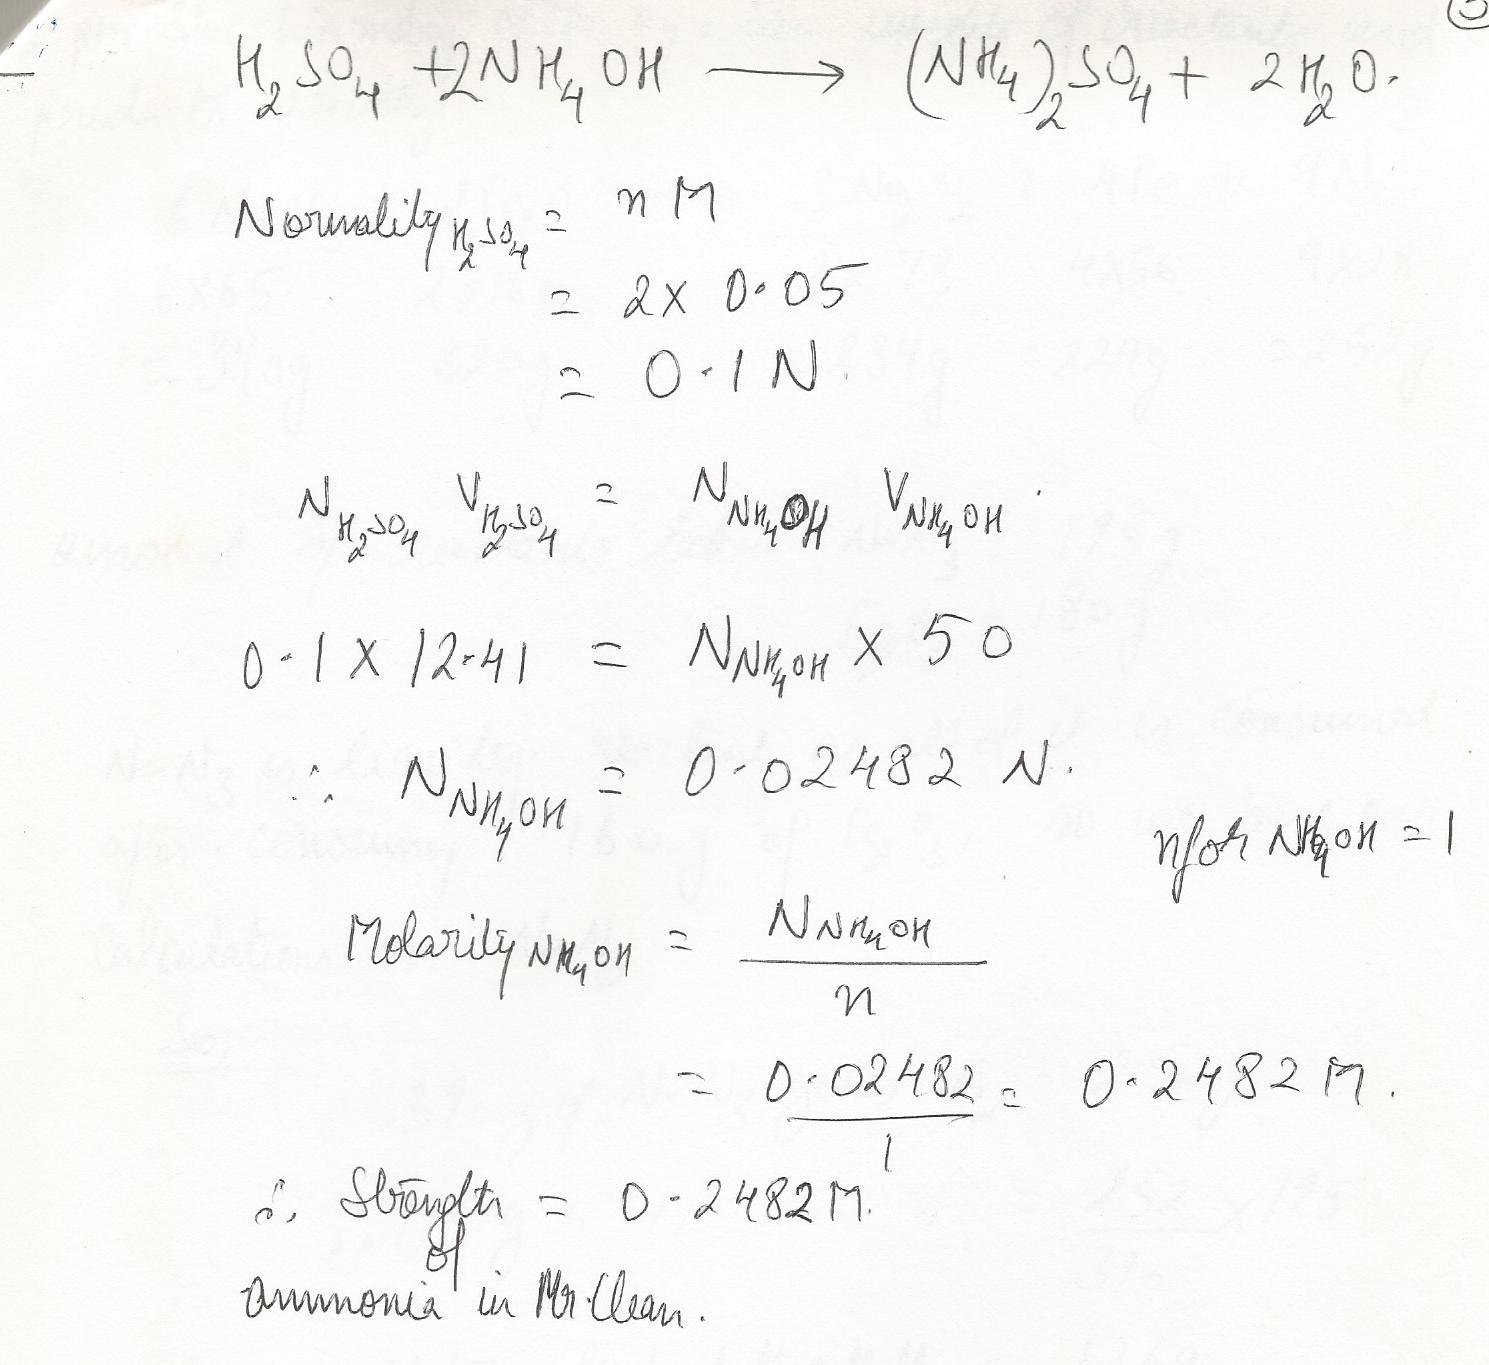 H2SO4 + 2NH4OH ⟶ (NH4)2SO4 + 2H2O.
Normality H2SO4 = nM
= 2 x 0.05
= 0.1 N.
N H2SO4 V H2SO4 = N NH4OH V NH4OH.
0.1 x 12.41 = N NH4OH x 50
∴ N NH4OH = 0.02482 N.
n for NH4OH = 1
Molarity NH4OH = N NH4OH / n
= 0.02482 / 1 = 0.2482 M.
∴ Strength = 0.2482 M.
of
ammonia in Mr. Clean.